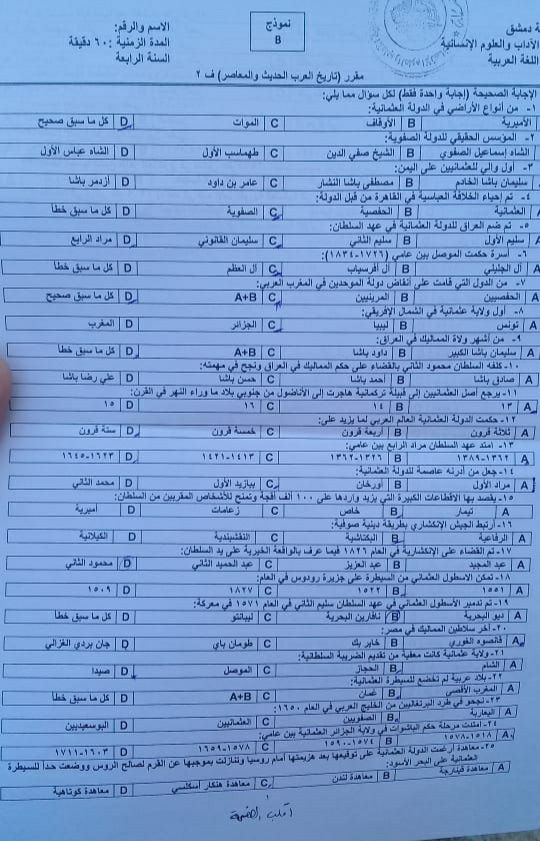 ـة دمشق
الآداب والعلوم الإنسانية
اللغة العربية
نموذج
B
الاسم والرقم:
المدة الزمنية : ٦٠ دقيقة
السنة الرابعة
مقرر (تاريخ العرب الحديث والمعاصر) ف ٢
الإجابة الصحيحة (إجابة واحدة فقط) لكل سؤال مما يلي:
١- من أنواع الأراضي في الدولة العثمانية:
الأميرية B الأوقاف C الموات D كل ما سبق صحيح
٢- المؤسس الحقيقي للدولة الصفوية:
الشاه إسماعيل الصفوي B الشيخ صفي الدين C طهماسب الأول D الشاه عباس الأول
٣- أول والي للعثمانيين على اليمن:
سليمان باشا الخادم B مصطفى باشا النشار C عامر بن داود D أزدمر باشا
٤- تم إحياء الخلافة العباسية في القاهرة من قبل الدولة:
العثمانية B الحفصية C الصفوية D كل ما سبق خطأ
٥- تم ضم العراق للدولة العثمانية في عهد السلطان:
A سليم الأول B سليم الثاني C سليمان القانوني D مراد الرابع
٦- أسرة حكمت الموصل بين عامي (١٧٢٦-١٨٣٤):
A آل الجليلي B آل أفرسياب C آل العظم D كل ما سبق خطأ
٧- من الدول التي قامت على أنقاض دولة الموحدين في المغرب العربي:
A الحفصيين B المرينيين C A+B D كل ما سبق صحيح
٨- أول ولاية عثمانية في الشمال الإفريقي:
A تونس B ليبيا C الجزائر D المغرب
٩- من أشهر ولاة المماليك في العراق:
A سليمان باشا الكبير B داود باشا C A+B D كل ما سبق خطأ
١٠- كلفه السلطان محمود الثاني بالقضاء على حكم المماليك في العراق ونجح في مهمته:
A صادق باشا B أحمد باشا C حسن باشا D علي رضا باشا
١١- يرجع أصل العثمانيين إلى قبيلة تركمانية هاجرت إلى الأناضول من جنوبي بلاد ما وراء النهر في القرن:
A ١٣ B ١٤ C ١٦ D ١٥
١٢- حكمت الدولة العثمانية العالم العربي لما يزيد على:
A ثلاثة قرون B أربعة قرون C خمسة قرون D ستة قرون
١٣- امتد عهد السلطان مراد الرابع بين عامي:
A ١٣٦٢-١٣٨٩ B ١٣٢٦-١٣٦٢ C ١٤١٣-١٤٢١ D ١٦٢٣-١٦٤٥
١٤- جعل من أدرنه عاصمة للدولة العثمانية:
A مراد الأول B أورخان C بيازيد الأول D محمد الثاني
١٥- يقصد بها الأقطاعات الكبيرة التي يزيد واردها على ١٠٠ ألف أقجة وتمنح للأشخاص المقربين من السلطان:
A تيمار B خاص C زعامات D أميرية
١٦- ارتبط الجيش الإنكشاري بطريقة دينية صوفية:
A الرفاعية B البكتاشية C النقشبندية D الكيلانية
١٧- تم القضاء على الإنكشارية في العام ١٨٢٦ فيما عرف بالواقعة الخيرية على يد السلطان:
A عبد المجيد B عبد العزيز C عبد الحميد الثاني D محمود الثاني
١٨- تمكن الاسطول العثماني من السيطرة على جزيرة رودوس في العام:
A ١٥٥١ B ١٥٢٢ C ١٨٢٧ D ١٥٠٩
١٩- تم تدمير الأسطول العثماني في عهد السلطان سليم الثاني في العام ١٥٧١ في معركة:
A ديو البحرية B نافارين البحرية C ليبانتو D كل ما سبق خطأ
٢٠- آخر سلاطين المماليك في مصر:
A قانصوه الغوري B خاير بك C طومان باي D جان بردي الغزالي
٢١- ولاية عثمانية كانت معفية من تقديم الضريبة السلطانية:
A الشام B الحجاز C الموصل D صيدا
٢٢- بلاد عربية لم تخضع للسيطرة العثمانية:
A المغرب الأقصى B عُمان C A+B D كل ما سبق خطأ
٢٣- نجحو في طرد البرتغاليين من الخليج العربي في العام ١٦٥٠:
A اليعاربة B الصفويين C العثمانيين D البوسعيديين
٢٤- امتدت مرحلة حكم الباشوات في ولاية الجزائر العثمانية بين عامي:
A ١٥١٨-١٥٧٨ B ١٥٧٤-١٥٩٠ C ١٥٧٨-١٦٥٩ D ١٦٠٣-١٧١١
٢٥- معاهدة أرغمت الدولة العثمانية على توقيعها بعد هزيمتها أمام روسيا وتنازلت بموجبها عن القرم لصالح الروس ووضعت حداً للسيطرة
العثمانية على البحر الأسود:
A معاهدة قينارجة B معاهدة لندن C معاهدة هنكار أسكلسي D معاهدة كوتاهية
١
أقلب الصفحة